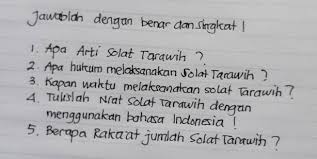 Jawablah dengan benar dan singkat !
1. Apa Arti Solat Tarawih ?
2. Apa hukum melaksanakan Solat Tarawih ?
3. Kapan waktu melaksanakan solat Tarawih ?
4. Tulislah Niat Solat Tarawih dengan
menggunakan bahasa Indonesia !
5. Berapa Rakaat jumlah Solat Tarawih ?